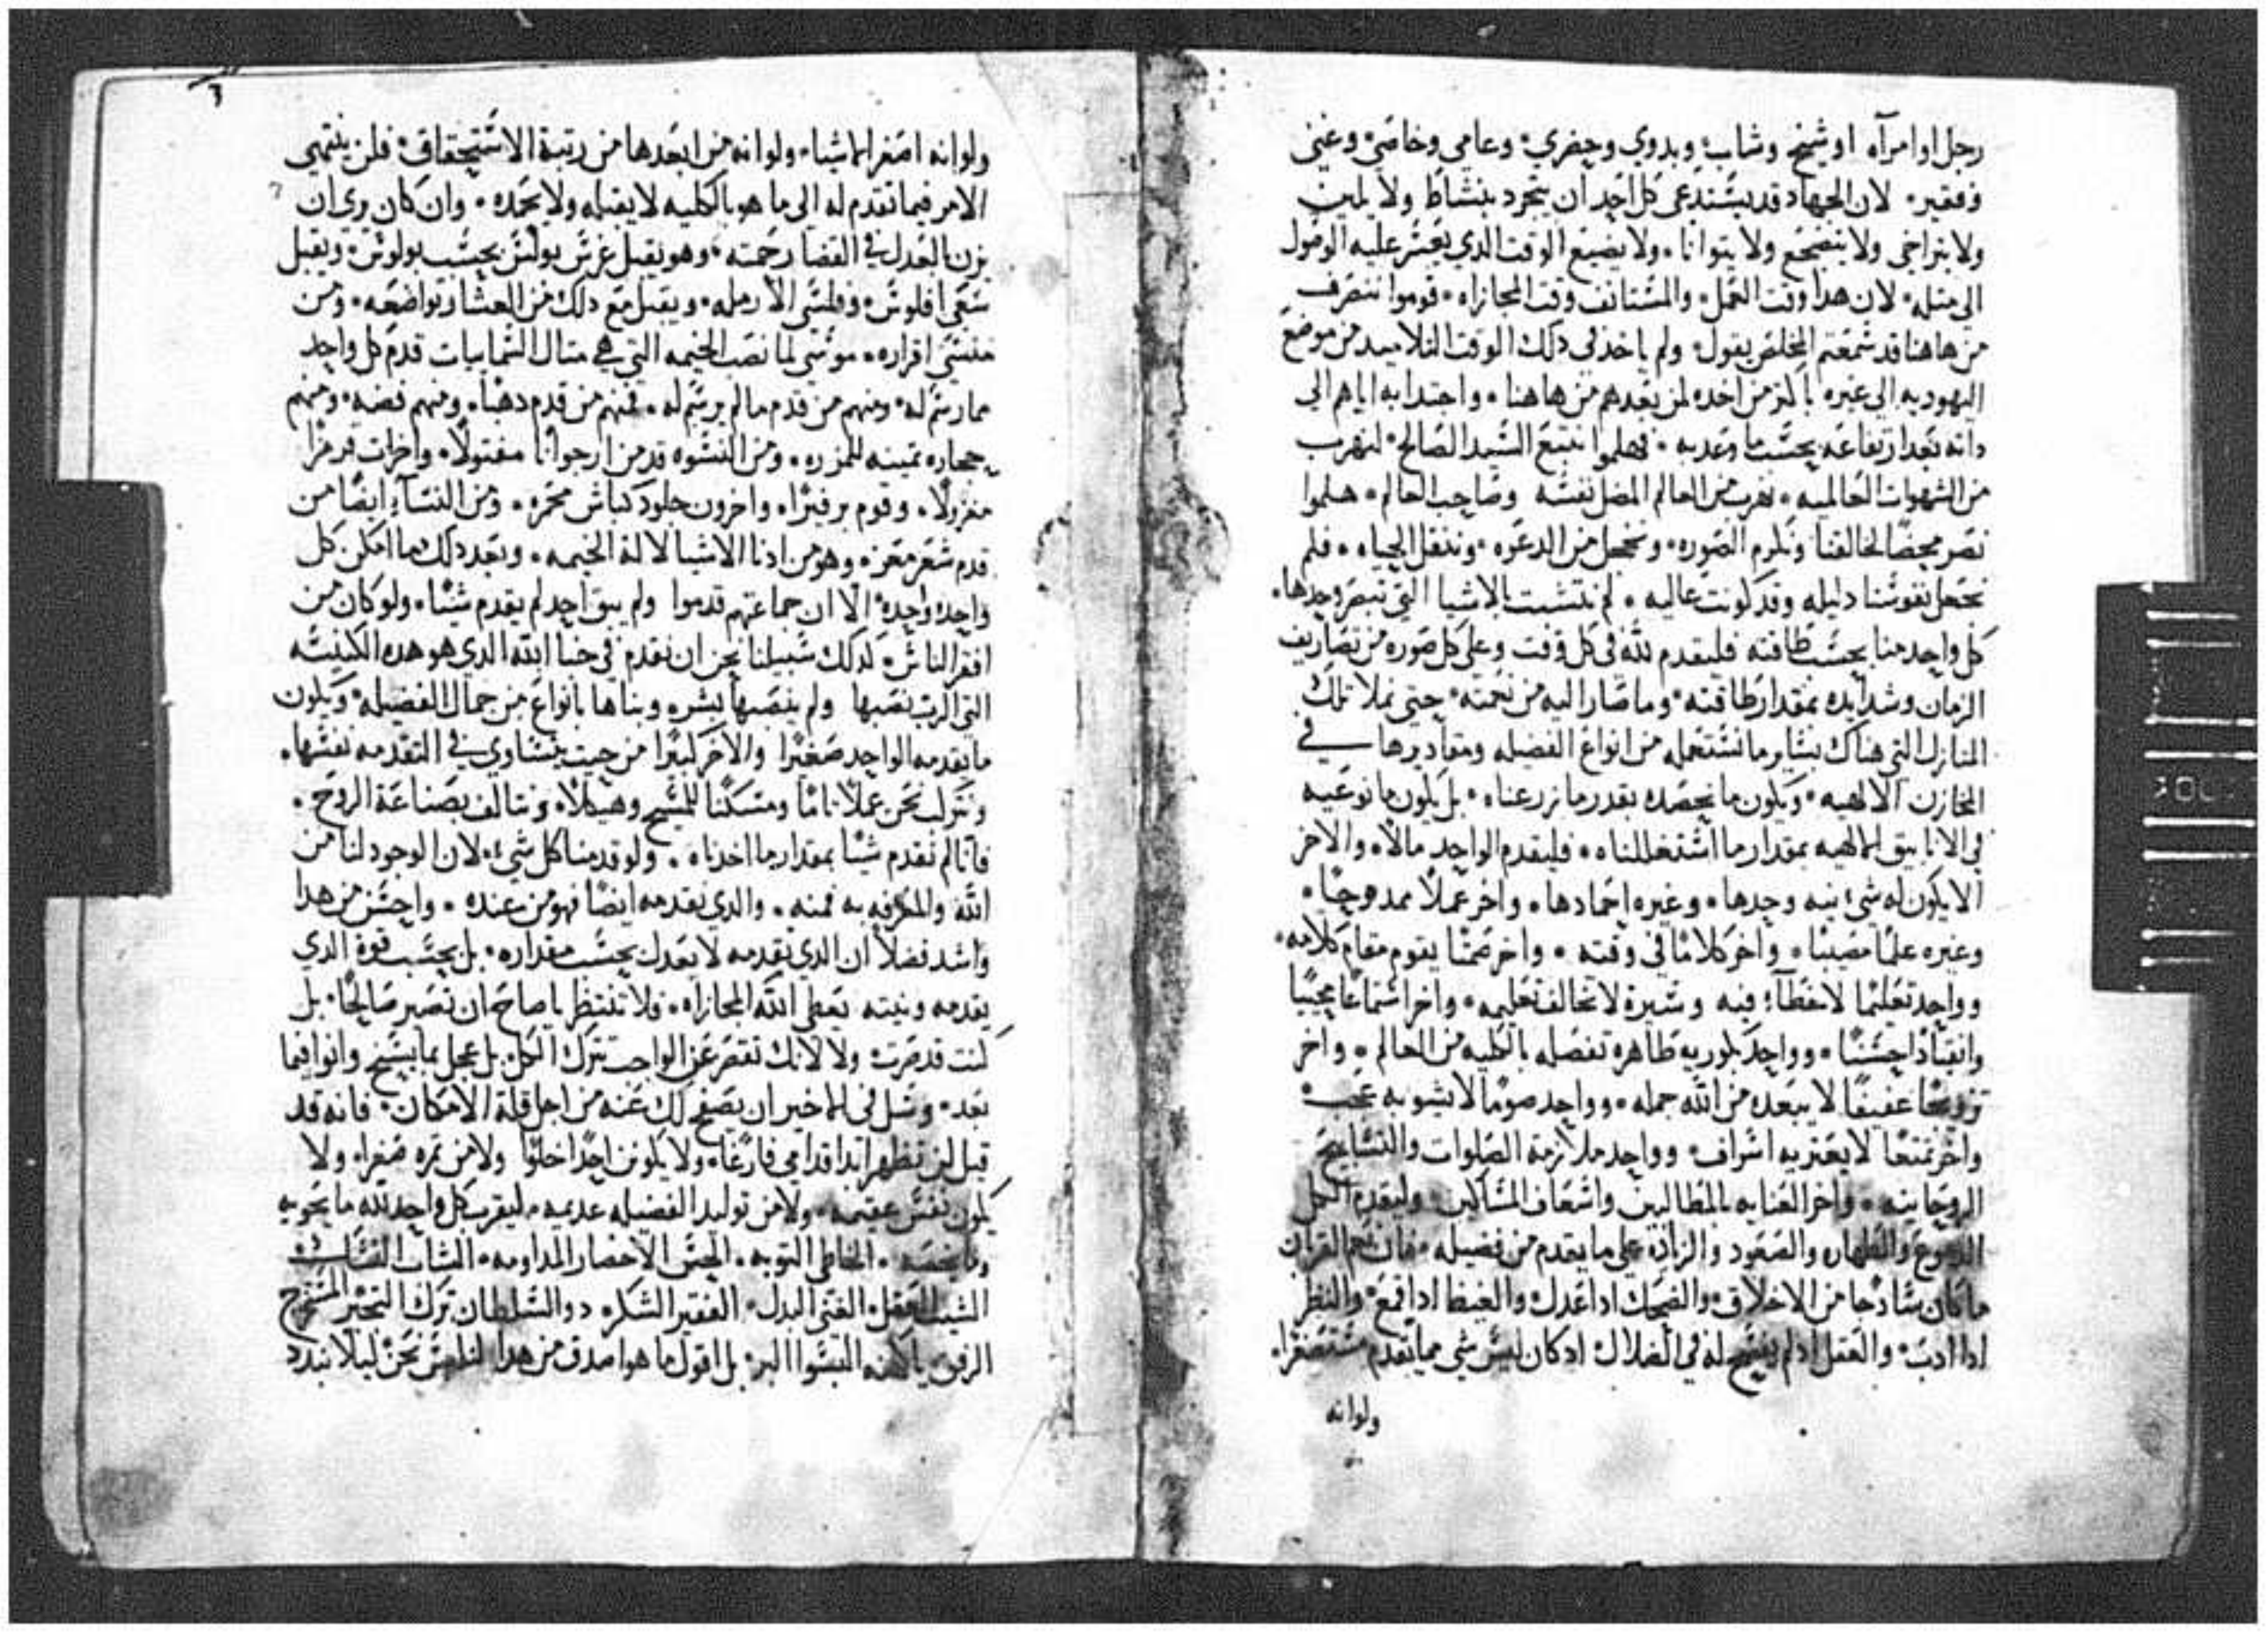 رجل او امرآه او شيخ وشاب وبدوي وحضري وعامي وخاصي وغني
وفقير لان الجهاد قد يستدعى كل احد ان يتجرد بنشاط ولا يلين
ولا يتراخى ولا يتضجع ولا يتوانا ولا يضيع الوقت الدي يعسر عليه الوصول
الى مثله لان هدا وقت العمل والمستانف وقت المجازاه قوموا ننصرف
من هاهنا قد سمعتم المخلص يقول ولم ياخذ فى دلك الوقت التلاميد من موضع
اليهوديه الى غيره باكثر من اخده لمن بعدهم من هاهنا واجتدابه اياهم الي
داته بعد ارتفاعه بحسب ما وعد به فهلموا نتبع السيد الصالح لنهرب
من الشهوات العالميه نهرب من العالم المضل نفسه وصاحب العالم هلموا
نصر محضا لخالقنا ونكرم الصوره ونخجل من الدعوه وننقل الحياه فلم
نجعل نفوسنا دليله وقد كونت عاليه لم نتشبت بالاشيا التي تبصر وحدها
كل واحد منا بحسب طاقته فليقدم لله فى كل وقت وعلى كل صوره من تصاريف
الزمان وشدايده بمقدار طاقته وما صار اليه من نعمته حتى نملا تلك
المنازل التي هناك بساير ما نستعمله من انواع الفضيله ومقاديرها في
المخازن الالهيه ويكون ما نحصده بقدر ما زرعناه بل يكون ما نوعيه
في الانابيق الالهيه بمقدار ما اشتغللناه فليقدم الواحد مالا والاخر
الا يكون له شى نيه وحدها وغيره احمادها واخر عملا ممدوحا
وغيره علما مصيبا واخر كلاما فى وقته واخر صمتا يقوم مقام كلامه
وواحد تعليما لا خطآ فيه وسيرة لا تخالف تعليمه واخر استماعا مجيبا
وانقيادا حسنا وواحد بكوريه طاهره تفصله بالكليه من العالم واخر
تزويجا عفيفا لا يبعده من الله جمله وواحد صوما لا يشوبه عجب
واخر تمتعا لا يعتريه اسراف وواحد ملازمة الصلوات والتسابيح
الروحانيه واخر العنايه بالمطالبين واسعاف المساكين وليقدم الكل
الدموع والطهاره والصعود والزياده على ما يقدم من فضيله
ما كان سادجا من الاخلاق والضحك ادا عدل والغيظ ادا قمع والنظر
ادا ادب والعقل اد لم يفسح له في الضلال ادكان ليس شي مما يقدم مستصغرا
ولوانه
ولوانه اصغر الاشيا ولوانه من ابعدها من رتبة الاستحقاق فلن ينتهي
الامر فيما تقدم له الى ما هو بالكليه لا يقبله ولا يحمده وان كان يري ان
يزن بالعدل في القضا رحمته وهو يقبل غرس بولس بحسب بولوس ويقبل
سقي افلوس وفلسَي الارمله ويقبل مع دلك من العشار تواضعه ومن
منسي اقراره موسى لما نصب الخيمه التي هي مثال السماييات قدم كل واحد
مما رسم له ومنهم من قدم ما لم يرسم له فمنهم من قدم دهبا ومنهم فضه ومنهم
حجاره تمينه للمزره ومن النسوه قدمن ارجوانا مفتولا واخرات قرمزا
مغزولا وقوم برفيرا واخرون جلود كباش محمره ومن النسآء ايضا من
قدم شعر معز وهو من ادنا الاشيا لالة الخيمه وبعد دلك بما امكن كل
واحد واحد الا ان جماعتهم قدموا ولم يبق احد لم يقدم شيئا ولو كان من
افقر الناس لدلك سبيلنا نحن ان نقدم في خبا الله الدي هو هده الكنيسه
التي الرب نصبها ولم ينصبها بشر وبناها بانواع من جمال الفضيله ويكون
ما يقدمه الواحد صغيرا والاخر كبيرا من حيت يتساوي في التقدمه نفسها
ونترك نحن عملا تاما ومسكنا للمسيح وهيكلا ونتالف بصناعة الروح
فانا لم نقدم شيئا بمقدار ما اخدناه ولو قدمنا كل شيء لان الوجود لنا من
الله والمعرفه به فمنه والدي نقدمه ايضا فهو من عنده واحسن من هدا
واشد فضلا ان الدي نقدمه لا يعدل بحسب مقداره بل بحسب قوة الدي
يقدمه ونيته يعطى الله المجازاه فلا تنتظر يا صاح ان تصير صالحا بل
كنت قد صرت ولا لانك تقصر عن الواجب تترك الكل بل عجل بما يسنح وانوا فيما
بعد وسل فى الاخير ان يصفح لك عنه من اجل قلة الامكان فانه قد
قيل لن تظهر ابدا قدامي فارغا ولا يكونن احدا خلوا ولا من ثمره صفرا ولا
يكون نفس عقيمه ولا من توليد الفضيله عديمه ليقرب كل واحد لله ما يحويه
وما يخصه الخاطى التوبه الحسن الاحضار المداومه الشاب النسك
الشيب العقل الغني البدل الفقير الشكر دوالسلطان ترك التجبر المتخرج
الرفق يا كهنه البسوا البر بل اقول ما هو اصدق من هدا لنلبس نحن ليلا نبدد